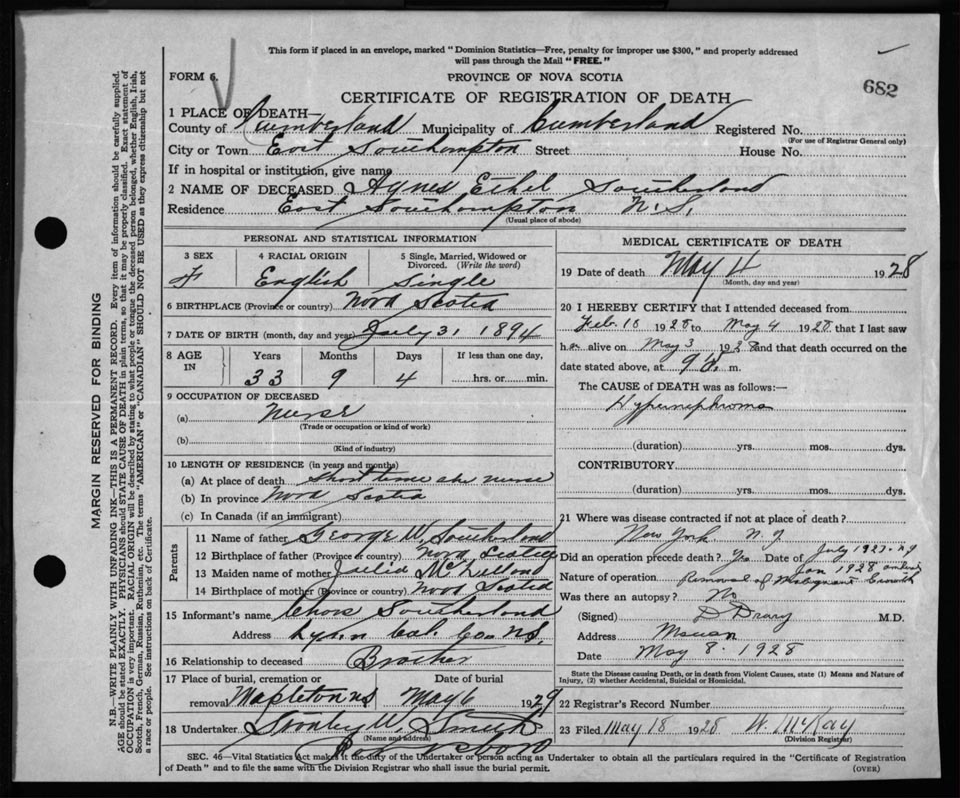 This form if placed in an envelope, marked "Dominion Statistics—Free, penalty for improper use $300," and properly addressed
will pass through the Mail "FREE."
FORM 6.
PROVINCE OF NOVA SCOTIA
682
CERTIFICATE OF REGISTRATION OF DEATH
1 PLACE OF DEATH—
County of Cumberland Municipality of Cumberland Registered No.
(For use of Registrar General only)
City or Town East Southampton Street House No.
If in hospital or institution, give name
2 NAME OF DECEASED Agnes Ethel Southerland
Residence East Southampton N.S.
(Usual place of abode)
PERSONAL AND STATISTICAL INFORMATION
3 SEX 4 RACIAL ORIGIN 5 Single, Married, Widowed or
Divorced. (Write the word)
F English Single
6 BIRTHPLACE (Province or country) Nova Scotia
7 DATE OF BIRTH (month, day and year) July 31, 1894
8 AGE Years Months Days If less than one day,
IN 33 9 4 hrs. or min.
9 OCCUPATION OF DECEASED
(a) Nurse
(Trade or occupation or kind of work)
(b)
(Kind of industry)
10 LENGTH OF RESIDENCE (in years and months)
(a) At place of death short time nurse
(b) In province Nova Scotia
(c) In Canada (if an immigrant)
Parents
11 Name of father George W. Southerland
12 Birthplace of father (Province or country) Nova Scotia
13 Maiden name of mother
14 Birthplace of mother (Province or country) Nova Scotia
15 Informant's name Southerland
Address Lynn Co. N.S.
16 Relationship to deceased Brother
17 Place of burial, cremation or Date of burial
removal Mapleton N.S. May 6 1929
18 Undertaker Stanley W. Smith
(Name and address)
MEDICAL CERTIFICATE OF DEATH
19 Date of death May 4 1928
(Month, day and year)
20 I HEREBY CERTIFY that I attended deceased from
Feb. 1928 to May 4 1928 that I last saw
her alive on May 3 1928 and that death occurred on the
date stated above, at 9 m.
The CAUSE OF DEATH was as follows:—
Hypernephroma
(duration) yrs. mos. dys.
CONTRIBUTORY
(duration) yrs. mos. dys.
21 Where was disease contracted if not at place of death?
New York N.Y
Did an operation precede death? Yes Date of July 1927 N.Y
Jan 1928 Amherst
Nature of operation Removal of Malignant Growth
Was there an autopsy? No
(Signed) M.D.
Address
Date May 8. 1928
State the Disease causing Death, or in death from Violent Causes, state (1) Means and Nature of
Injury, (2) whether Accidental, Suicidal or Homicidal.
22 Registrar's Record Number
23 Filed May 18 1928 W. McKay
(Division Registrar)
SEC. 46—Vital Statistics Act makes it the duty of the Undertaker or person acting as Undertaker to obtain all the particulars required in the "Certificate of Registration
of Death" and to file the same with the Division Registrar who shall issue the burial permit.
(OVER)
MARGIN RESERVED FOR BINDING
N.B.—WRITE PLAINLY WITH UNFADING INK—THIS IS A PERMANENT RECORD. Every item of information should be carefully supplied.
AGE should be stated EXACTLY. PHYSICIANS should STATE CAUSE OF DEATH in plain terms, so that it may be properly classified. Exact statement of
OCCUPATION is very important. RACIAL ORIGIN will be described by stating to what people or tongue the deceased person belonged, whether English, Irish,
Scotch, French, German, Russian, Ruthenian, etc. The terms "AMERICAN" or "CANADIAN" SHOULD NOT BE USED as they express citizenship but not
a race or people. See instructions on back of Certificate.